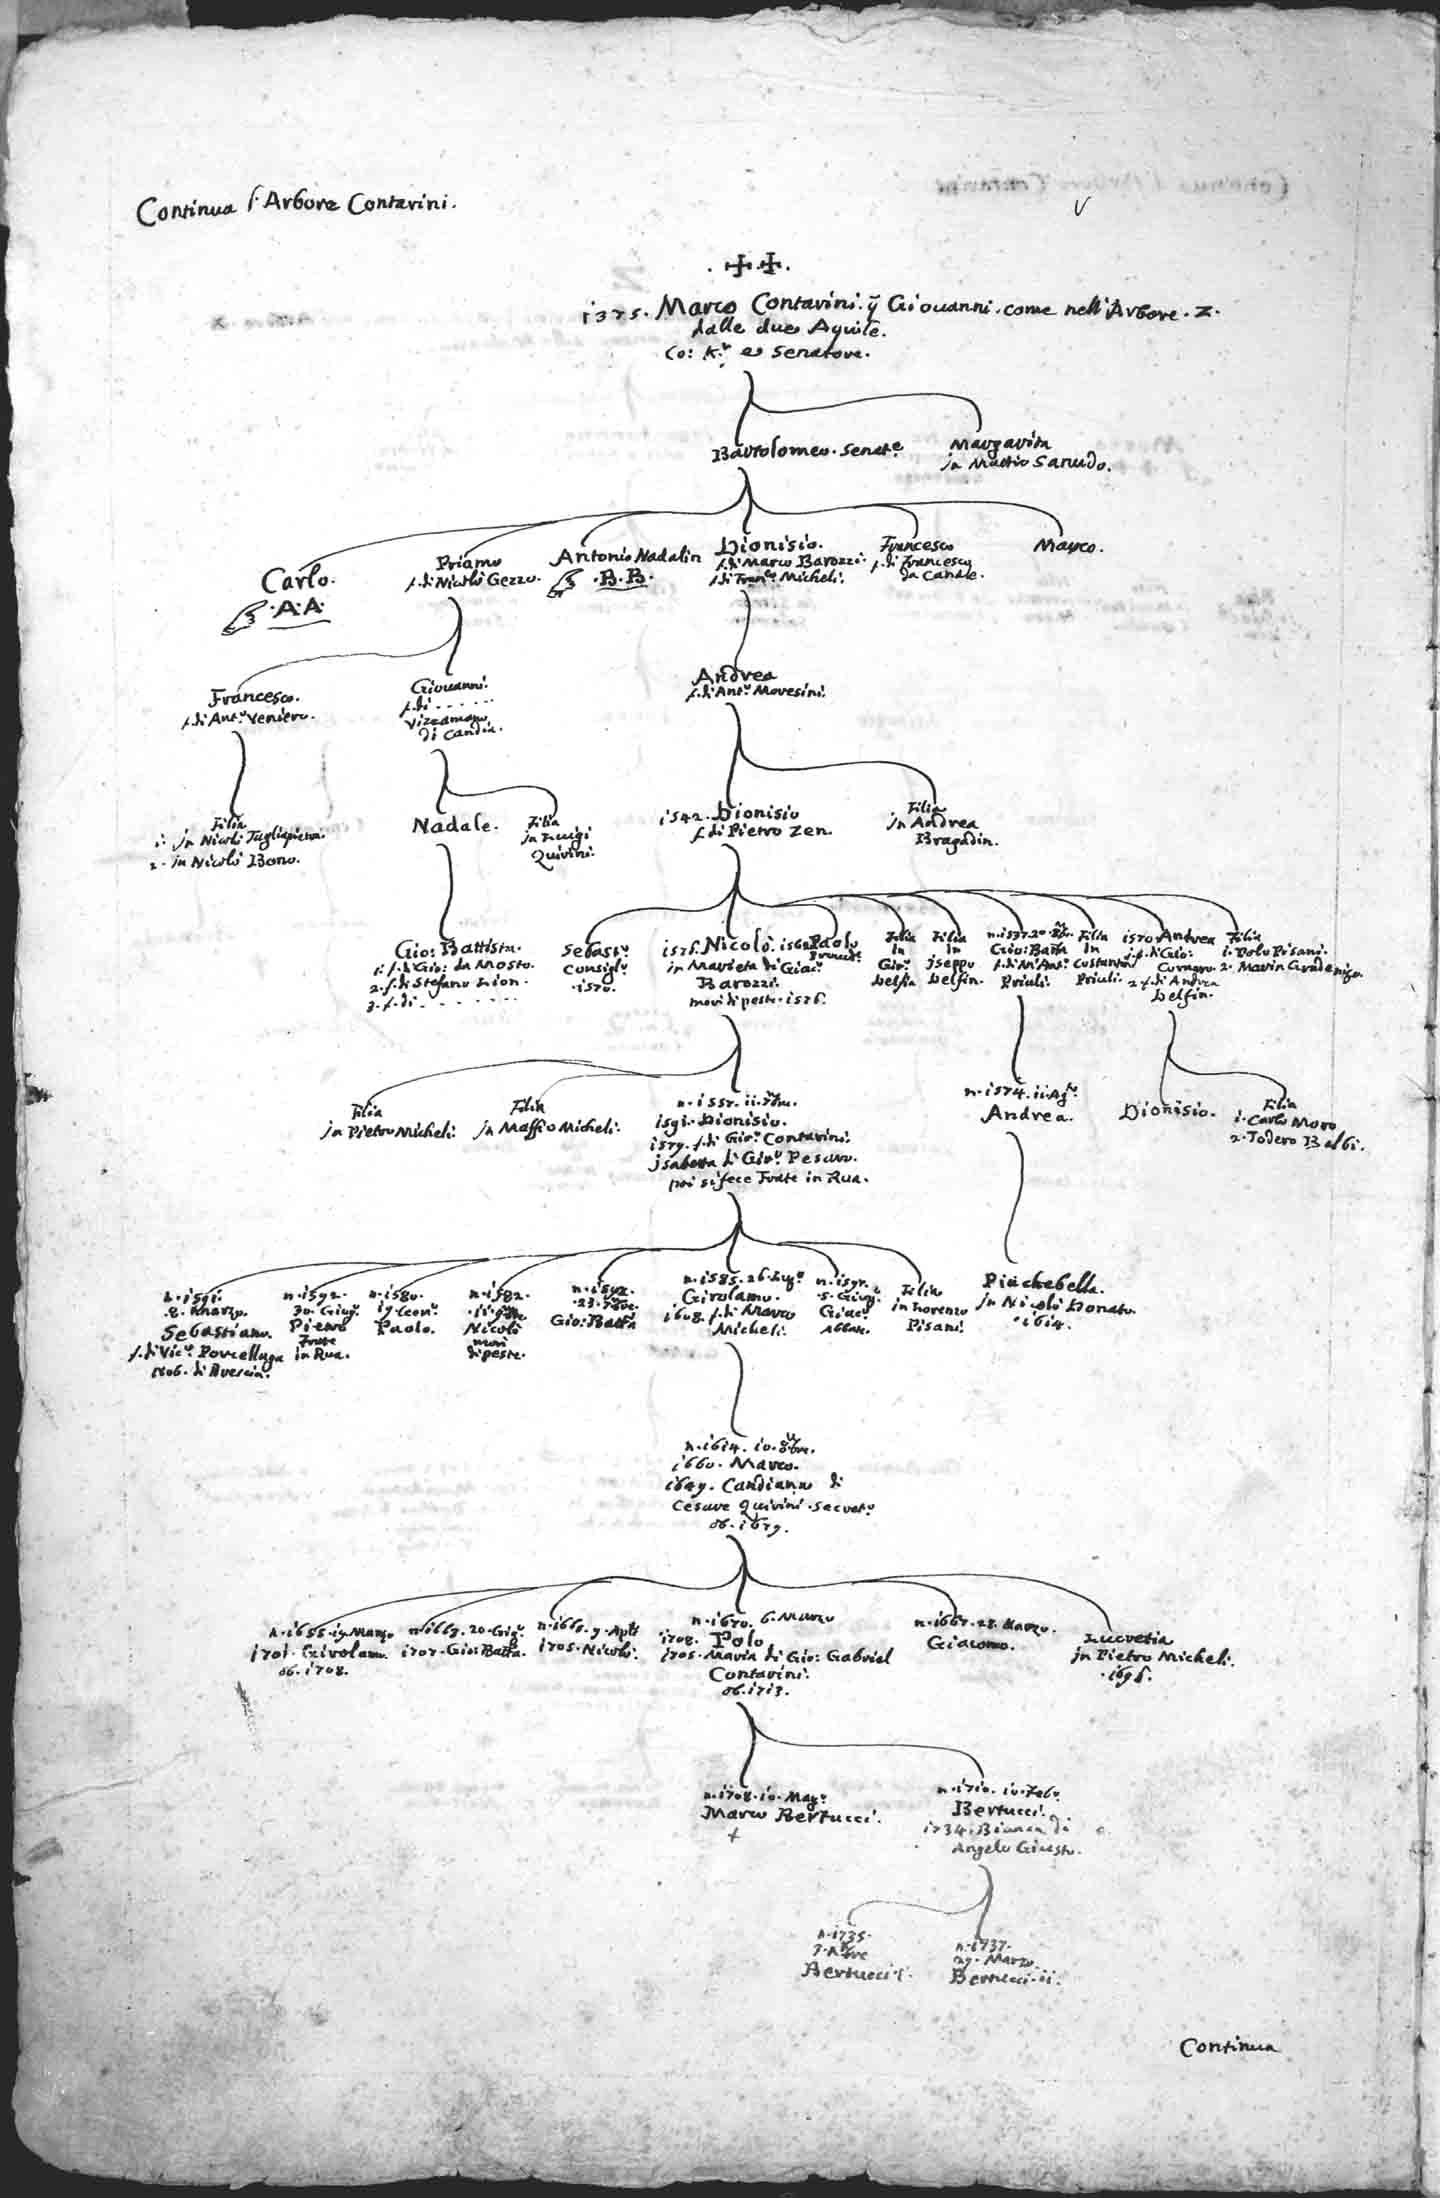 Continua l'Arbore Contarini.
V
1375. Marco Contarini. q̃ Giouanni. come nell'Arbore. Z.
dalle due Aquile.
Co: K.r e Senatore.
Bartolomeo. Senat.e
Margarita
in Mattio Sanudo.
Carlo.
.A.A.
Priamo
f. di Nicolò Gezzo.
Antonio Nadalin
.B.B.
Dionisio.
f. di Marco Barozzi.
f. di Fran.co Micheli.
Francesco
f. di Francesco
da Canale.
Marco.
Francesco.
f. di Ant.o Veniero.
Giouanni.
f. di . . . . . .
Vizzamano
di Candia.
Andrea
f. di Ant.o Moresini.
Filia
1. in Nicolò Tagliapietra.
2. in Nicolò Bono.
Nadale.
Filia
in Luigi
Quirini.
1542. Dionisio
f. di Pietro Zen.
Filia
in Andrea
Bragadin.
Gio: Battista.
1. f. di Gio: da Mosto.
2. f. di Stefano Lion.
3. f. di . . . . . . . .
Sebast.o
Consigl.o
.1570.
1575. Nicolò.
in Marieta di Giac.o
Barozzi.
morì di peste. 1576.
Paolo
Filia
in
Gir.o
Delfin
Filia
in
Jseppo
Delfin.
Gio: Batta
f. di M. Ant.o
Priuli.
Filia
in
Costantin
Priuli.
1570. Andrea
1. f. di Gio:
Cornaro.
2. f. di Andrea
Delfin.
Filia
1. Polo Pisani.
2. Marin Gradenigo.
Filia
in Pietro Micheli.
Filia
in Maffio Micheli.
n. 1557. 11. 7bre.
1591. Dionisio.
1579. f. di Gir.o Contarini.
Jsabetta di Gir.o Pesaro.
poi si fece Frate in Rua.
n. 1574. 11. Ag.to
Andrea.
Dionisio.
Filia
1. Carlo Moro
2. Todero Balbi.
n. 1591.
8. Marzo.
Sebastiano.
f. di Vic.o Porcellaga
1606. di Brescia.
n. 1592.
30. Giug.o
Pietro
Frate
in Rua.
n. 1580.
19. Genn.o
Paolo.
n. 1582.
Nicolò
morì
di peste.
23. 7bre.
Gio: Batta
n. 1585. 26. Lug.o
Girolamo.
1608. f. di Marco
Micheli.
5. Giug.o
Giac.o
Abbate.
Filia
in Lorenzo
Pisani.
Richebella.
in Nicolò Donato.
.1614.
n. 1614. 10. 8bre.
1660. Marco.
1649. Candiana di
Cesare Quirini. Secret.o
ob. 1679.
n. 1655. 19. Marzo
1701. Girolamo.
ob. 1708.
n. 1663. 20. Giug.o
1707. Gio: Batta.
n. 1665. 9. Apli
1705. Nicolò.
n. 1670. 6. Marzo
1708. Polo
1705. Maria di Gio: Gabriel
Contarini.
ob. 1713.
n. 1667. 28. Marzo.
Giacomo.
Lucretia
in Pietro Micheli.
.1696.
n. 1708. 10. Mag.o
Marco Bertucci.
+
n. 1710. 10. Feb.o
Bertucci.
1734. Bianca di
Angelo Giusto.
n. 1735.
Bertucci. i.
n. 1737.
29. Marzo.
Bertucci. ii.
Continua